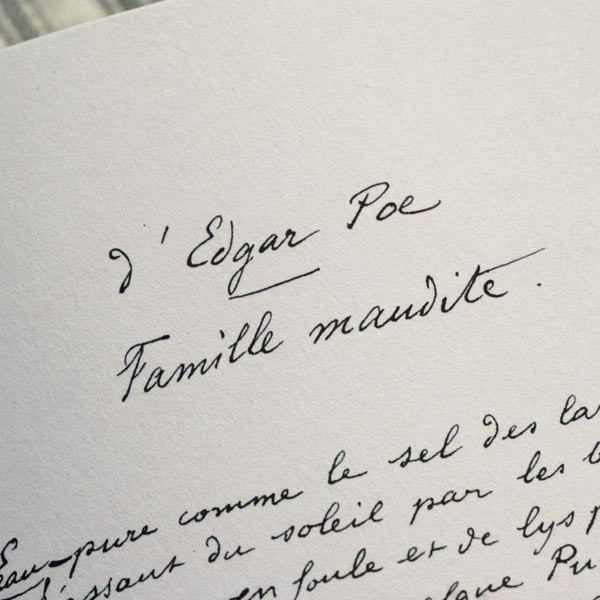 d'Edgar Poe
Famille maudite.
Eau-pure comme le sel des
l'assaut du soleil par les
en foule et de lys